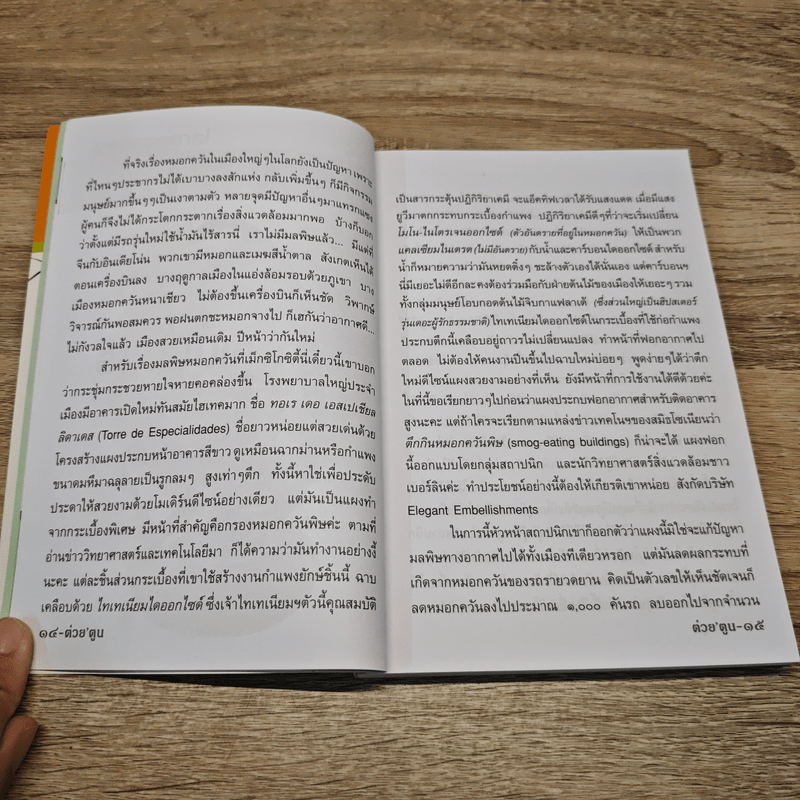 ที่จริงเรื่องหมอกควันในเมืองใหญ่ๆในโลกยังเป็นปัญหา เพราะ
ที่ไหนๆประชากรไม่ได้เบาบางลงสักแห่ง กลับเพิ่มขึ้นๆ ก็มีกิจกรรม
มนุษย์มากขึ้นๆๆเป็นเงาตามตัว หลายจุดมีปัญหาอื่นๆมาแทรกแซง
ผู้คนก็จึงไม่ได้กระโตกกระตากเรื่องสิ่งแวดล้อมมากพอ บ้างก็บอก
ว่าตั้งแต่มีรถรุ่นใหม่ใช้น้ำมันไร้สารนี่ เราไม่มีมลพิษแล้ว... มีแต่ที่
จีนกับอินเดียโน่น พวกเขามีหมอกและเมฆสีน้ำตาล สังเกตเห็นได้
ตอนเครื่องบินลง บางฤดูกาลเมืองในแอ่งล้อมรอบด้วยภูเขา บาง
เมืองหมอกควันหนาเชียว ไม่ต้องขึ้นเครื่องบินก็เห็นชัด วิพากษ์
วิจารณ์กันพอสมควร พอฝนตกชะหมอกจางไป ก็เฮกันว่าอากาศดี...
ไม่กังวลใจแล้ว เมืองสวยเหมือนเดิม ปีหน้าว่ากันใหม่
สำหรับเรื่องมลพิษหมอกควันที่เม็กซิโกซิตี้นี่เดี๋ยวนี้เขาบอก
ว่ากระชุ่มกระชวยหายใจหายคอคล่องขึ้น โรงพยาบาลใหญ่ประจำ
เมืองมีอาคารเปิดใหม่ทันสมัยไฮเทคมาก ชื่อ ทอเร เดอ เอสเปเซียล
ลิดาเดส (Torre de Especialidades) ชื่อยาวหน่อยแต่สวยเด่นด้วย
โครงสร้างแผงประกบหน้าอาคารสีขาว ดูเหมือนฉากม่านหรือกำแพง
ขนาดมหึมาฉลุลายเป็นรูกลมๆ สูงเท่าๆตึก ทั้งนี้หาใช่เพื่อประดับ
ประดาให้สวยงามด้วยโมเดิร์นดีไซน์อย่างเดียว แต่มันเป็นแผงทำ
จากกระเบื้องพิเศษ มีหน้าที่สำคัญคือกรองหมอกควันพิษค่ะ ตามที่
อ่านข่าววิทยาศาสตร์และเทคโนโลยีมา ก็ได้ความว่ามันทำงานอย่างงี้
นะคะ แต่ละชิ้นส่วนกระเบื้องที่เขาใช้สร้างงานกำแพงยักษ์ชิ้นนี้ ฉาบ
เคลือบด้วย ไทเทเนียมไดออกไซด์ ซึ่งเจ้าไทเทเนียมฯตัวนี้คุณสมบัติ
๑๔-ต่วย'ตูน
เป็นสารกระตุ้นปฏิกิริยาเคมี จะแอ็คทิฟเวลาได้รับแสงแดด เมื่อมีแสง
ยูวีมาตกกระทบกระเบื้องกำแพง ปฏิกิริยาเคมีดีๆที่ว่าจะเริ่มเปลี่ยน
โมโน-ไนโตรเจนออกไซด์ (ตัวอันตรายที่อยู่ในหมอกควัน) ให้เป็นพวก
แคลเซียมไนเตรต (ไม่มีอันตราย) กับน้ำและคาร์บอนไดออกไซด์ สำหรับ
น้ำก็หมายความว่ามันหยดติ๋งๆ ชะล้างตัวเองได้นั่นเอง แต่คาร์บอนฯ
นี่มีเยอะไม่ดีอีกละคงต้องร่วมมือกับฝ่ายต้นไม้ของเมืองให้เยอะๆ รวม
ทั้งกลุ่มมนุษย์โอบกอดต้นไม้จิบกาแฟลาเต้ (ซึ่งส่วนใหญ่เป็นฮิปสเตอร์
รุ่นเดอะผู้รักธรรมชาติ) ไทเทเนียมไดออกไซด์ในกระเบื้องที่ใช้ก่อกำแพง
ประกบตึกนี้เคลือบอยู่ถาวรไม่เปลี่ยนแปลง ทำหน้าที่ฟอกอากาศไป
ตลอด ไม่ต้องให้คนงานปีนขึ้นไปฉาบใหม่บ่อยๆ พูดง่ายๆได้ว่าตึก
ใหม่ดีไซน์แผงสวยงามอย่างที่เห็น ยังมีหน้าที่การใช้งานได้ดีด้วยค่ะ
ในที่นี้ขอเรียกยาวๆไปก่อนว่าแผงประกบฟอกอากาศสำหรับติดอาคาร
สูงนะคะ แต่ถ้าใครจะเรียกตามแหล่งข่าวเทคโนฯของสมิธโซเนียนว่า
ตึกกินหมอกควันพิษ (smog-eating buildings) ก็น่าจะได้ แผงฟอก
นี้ออกแบบโดยกลุ่มสถาปนิก และนักวิทยาศาสตร์สิ่งแวดล้อมชาว
เบอร์ลินค่ะ ทำประโยชน์อย่างนี้ต้องให้เกียรติเขาหน่อย สังกัดบริษัท
Elegant Embellishments
ในการนี้หัวหน้าสถาปนิกเขาก็ออกตัวว่าแผงนี้มิใช่จะแก้ปัญหา
มลพิษทางอากาศไปได้ทั้งเมืองทีเดียวหรอก แต่มันลดผลกระทบที่
เกิดจากหมอกควันของรถรายวดยาน คิดเป็นตัวเลขให้เห็นชัดเจนก็
ลดหมอกควันลงไปประมาณ ๑,๐๐๐ คันรถ ลบออกไปจากจำนวน
ต่วย'ตูน-๑๕